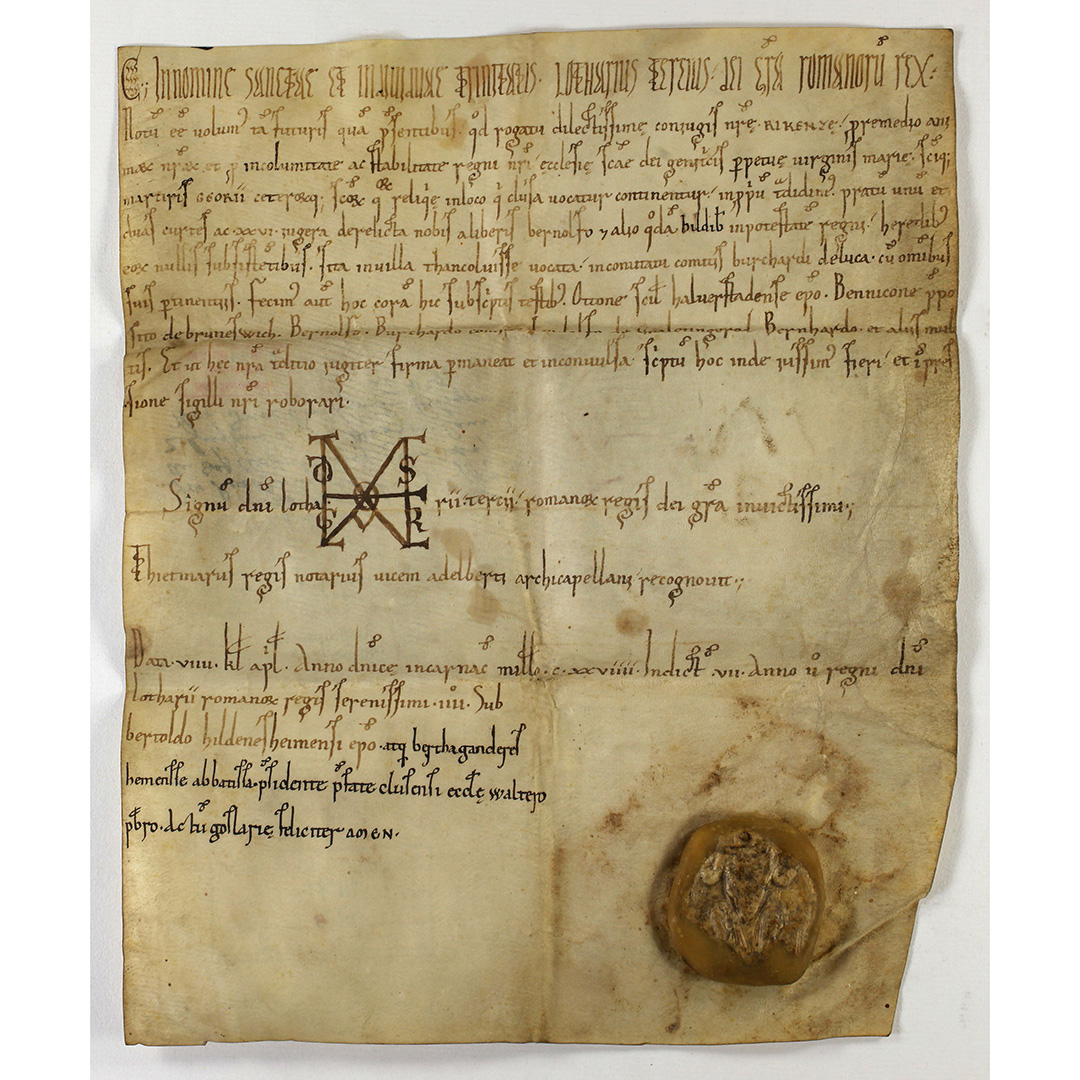 C:; IN NOMINE SANCTAE ET INDIVIDUAE TRINITATIS · LOTHARIUS TERCIUS · DEI GRA ROMANORŪ REX :·
Notū ēē volum' tā futuris quā p̄sentibus · qd rogatu dilectissimę conjugis nrę · RIKENZĘ · p remedio ani
mae nrae et p incolumitate ac stabilitate regni nri ęcclesię scae dei genitricis perpetuę virginis marię · sciq;
martiris GEORII ceterorq; scoꝝ qꝝ reliqię in loco q clusa vocatur continentur · in ppū tdidim' · pratū unū et
duas curtes ac · xxvi · jugera derelicta nobis a liberis bernolfo ⁊ alio qdā bildib in potestate regni · heredib'
eoꝝ nullis subsistētibus · sita in villa thancolvisse vocata · in comitatu comitis burchardi de luca · cū omībus
suis ptinentiis · Fecim' aut hoc corā hic subscptis testib' · Ottone scil halverstadense epo · Bennicone ppo
sito de bruneswich · Bernolfo · Burchardo Bernhardo · et aliis mul
tis · Et ut hęc nra tditio jugiter firma pmaneat et inconvulsa · scptū hoc inde jussim' fieri · et ipres
sione sigilli nri roborari ·
Signū dni lotha rii · tercii · romanoꝝ regis dei gra invictissimi :;
Thietmarus regis notarius vicem adelberti archicapellani recognovit :;
Data · viiii · kl apl · Anno dnicę incarnac millo · c · xxviiii · Indict · vii · anno ū regni dni
lotharii romanoꝝ regis serenissimi · iiii · Sub
bertoldo hildenesheimensi epo · atq berthaganderes
hemensse abbatissa · psidente pfate clusensi eccłę waltero
pbro · Actū goslarię feliciter AMEN ·